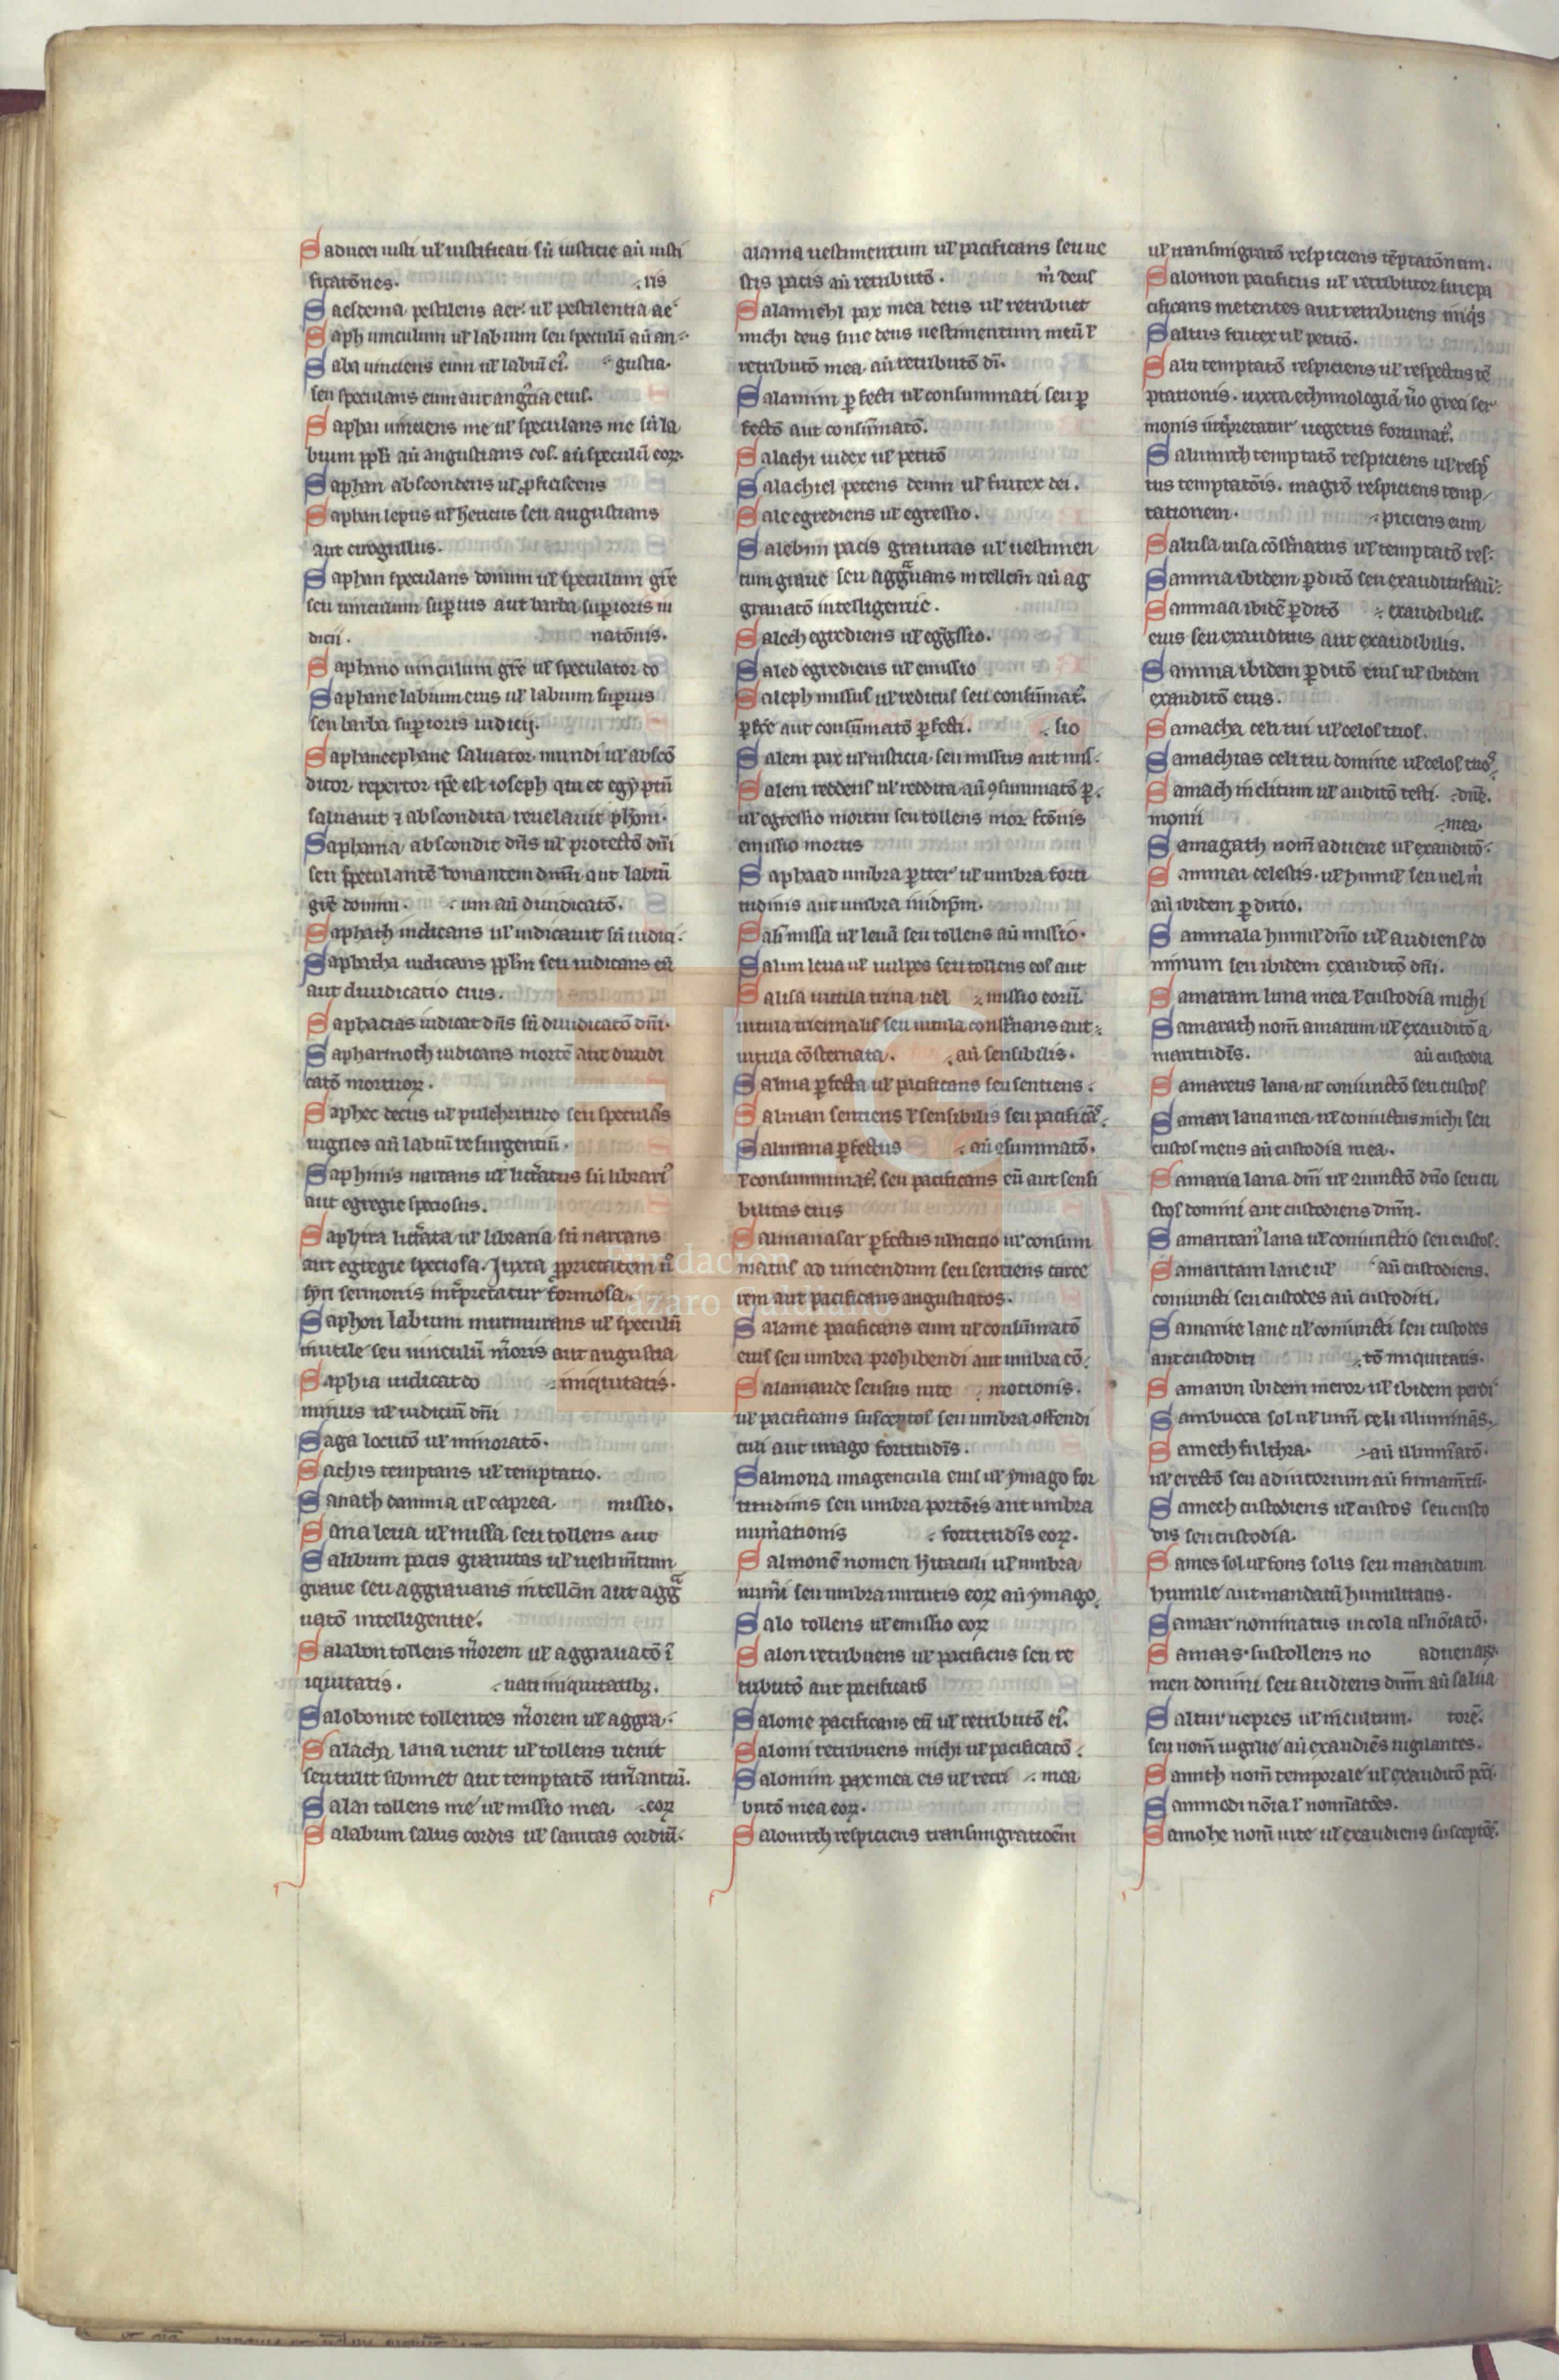 Saducei iusti uł iustificati sū iusticie aū iusti
ficatōnes. .ris
Saeldema pestilens aer. uł pestilentia ae
Saph uinculum uł labium seu speculū aū an
Saba uinciens eum uł labiū ei᾽. gustia.
seu speculans eum aut angustia eius.
Saphai uinciens me uł speculans me sū la
bium ppłi aū angustians eos. aū speculū eoꝝ.
Saphan abscondens uł proficiscens
Saphan lepus uł hericius seu angustians
aut cirogrillus.
Saphan speculans donum uł speculum gr̄e
seu uinculum superius aut barba superioris iu
dicii. natōnis.
Saphano uinculum gr̄e uł speculator do
Saphane labium eius uł labium superius
seu barba superioris iudicij.
Saphaneephane saluator mundi uł abscō
ditor repertor ip̄e est ioseph qui et egyptū
saluauit ⁊ abscondita reuelauit pharaoni.
Saphania abscondit dn̄s uł protectō dn̄i
seu speculantē donantem dnm̄ aut labiū
gr̄e domini. um aū diiudicatō.
Saphath iudicans uł iudicauit sū iudici
Saphatha iudicans ppłm seu iudicans eū
aut diiudicatio eius.
Saphacias iudicat dn̄s sū diiudicatō dn̄i.
Sapharmoth iudicans mortē aut diiudi
catō mortuoꝝ.
Saphec decus uł pulchritudo seu speculās
uigiles aū labiū resurgentiū.
Saphinis narrans uł litt̄atus sū librari᾽
aut egregie speciosus.
Saphira litt̄ata uł libraria sū narrans
aut egregie speciosa. Juxta proprietatem ū᾽
syri sermonis int̄pretatur formosa.
Saphon labium murmurans uł speculū
inutile seu uinculū m̄oris aut angustia
Saphia iudicat do iniquitatis.
minus uł iudiciū dn̄i
Saga locutō uł minoratō.
Sachis temptans uł temptatio.
Sanath damma uł caprea. missio.
Sana leua uł missa. seu tollens aut
Salibum pacis grauitas uł uestim̄tum
graue seu aggrauans intellc̄m aut aggᵃ
uatō intelligentie.
Salalon tollens m̄orem uł aggrauatō ī
iquitatis. uati iniquitatibꝫ.
Salobonite tollentes m̄orem uł aggra
Salacha lana uenit uł tollens uenit
seu tulit sibimet aut temptatō itin̄antiū.
Salai tollens me uł missio mea. eoꝝ
Salabum salus cordis uł sanitas cordiū.
alama uestimentum uł pacificans seu ue
stis pacis aū retributō. m̄ deus
Salamiehl pax mea deus uł retribuet
michi deus siue deus uestimentum meū ł
retributō mea. aū retributō dī.
Salamim perfecti uł consummati seu per
fectō aut consūmatō.
Salachi iudex uł petitō
Salachiel petens deum uł frutex dei.
Sale egrediens uł egressio.
Salebim pacis grauitas uł uestimen
tum graue seu aggᵃuans intellc̄m aū ag
grauatō intelligentie.
Salech egrediens uł egressio.
Saled egrediens uł emissio
Saleph missus uł reditus seu consūmat᾽.
perfc̄e aut consūmatō perfecti. sio
Salem pax uł iusticia. seu missus aut mis
Salem reddens uł reddita. aū ꝯsummatō per
uł egressio mortui seu tollens mor fc̄ōnis
emissio mortis
Saphaad umbra pariter uł umbra forti
tudinis aut umbra inidip̄m.
Sali missa uł leuā seu tollens aū missio.
Salim leua uł uulpes seu tollens eos aut
Salisa uitula trina uel missio eorū.
uitula triennalis seu uitula consternans aut
uitula cōsternata. aū sensibilis.
Salma perfecta uł pacificans seu sentiens.
Salman sentiens ł sensibilis seu pacificās.
Salmana perfectus aū ꝯsummatō.
ł consummat᾽. seu pacificans eū aut sensi
bilitas eius
Salmanasar perfectus uincito uł consum
matus ad uincendum seu sentiens carce
rem aut pacificans angustiatos.
Salame pacificans eum uł consūmatō
eius seu umbra prohibendi aut umbra cō
Salamande sensus uite motionis.
uł pacificans susceptos seu umbra offendi
culi aut imago fortitudīs.
Salmona imagencula eius uł ymago for
titudinis seu umbra portōis aut umbra
num̄ationis fortitudīs eoꝝ.
Salmonē nomen hitaculi uł umbra
num̄i seu umbra uirtutis eoꝝ aū ymago
Salo tollens uł emissio eoꝝ
Salon retribuens uł pacificus seu re
tributō aut pacificatō
Salome pacificans eū uł retributō ei᾽.
Salomi retribuens michi uł pacificatō
Salomim pax mea eis uł retri mea
butō mea eoꝝ.
Salomith respiciens transmigratioēm
uł transmigratō respiciens tēptatōnum.
Salomon pacificus uł retributor siue pa
cificans metentes aut retribuens iniqis
Saltus frutex uł petitō.
Salu temptatō respiciens uł respectus tē
ptationis. iuxta ethimologiā ūo greci ser
monis int̄pretatur uegetus fortunat᾽.
Salumith temptatō respiciens uł respec
tus temptatōis. migratō respiciens temp
tationem. piciens eum
Salusa uisa cōst̄natus uł temptatō res
Samma ibidem perditō seu exauditus aū
Sammaa ibidē perditō exaudibilis.
eius seu exauditus aut exaudibilis.
Samma ibidem perditō eius uł ibidem
exauditō eius.
Samacha celi tui uł celos tuos.
Samachias celi tui domine uł celos tuos
Samach inclitum uł auditō testi dn̄e.
monii mea
Samagath nom̄ aduene uł exauditō
Sammai celestis. uł humił seu uel m̄
aū ibidem perditio.
Sammala humił dn̄o uł audiens do
minum seu ibidem exauditō dn̄i.
Samaram luna mea ł custodia michi
Samarath nom̄ amatum uł exauditō a
maritudīs. aū custodia
Samareus lana uł coniunctō seu custos
Samari lana mea uł coniunctus michi seu
custos meus aū custodia mea.
Samaria lana dn̄i uł ꝯiunctō dn̄o seu cu
stos domini aut custodiens dnm̄.
Samaritan᾽ lana uł coniunctio seu custos
Samaritam lane uł aū custodiens.
coniuncti seu custodes aū custoditi.
Samarite lane uł coniuncti seu custodes
aut custoditi tō iniquitatis.
Samaron ibidem meror uł ibidem perdi
Sambucca sol uł unn̄ celi illuminās
Samech fulthra. aū illumīatō.
uł erectō seu adiutorium aū firmam̄tū.
Samech custodiens uł custos seu custo
dis seu custodia.
Sames sol uł fons solis seu mandatum
humile aut mandatū humilitatis.
Samaar nominatus incola uł nōīatō
Samais. sustollens no aduenaꝝ.
men domini seu audiens dnm̄ aū salua
Saltur uepres uł incultum. torē.
seu nom̄ uigilie aū exaudiēs uigilantes.
Samith nom̄ temporale uł exauditō
Sammodi nōia ł nomīatōes.
Samohe nom̄ uite uł exaudiens